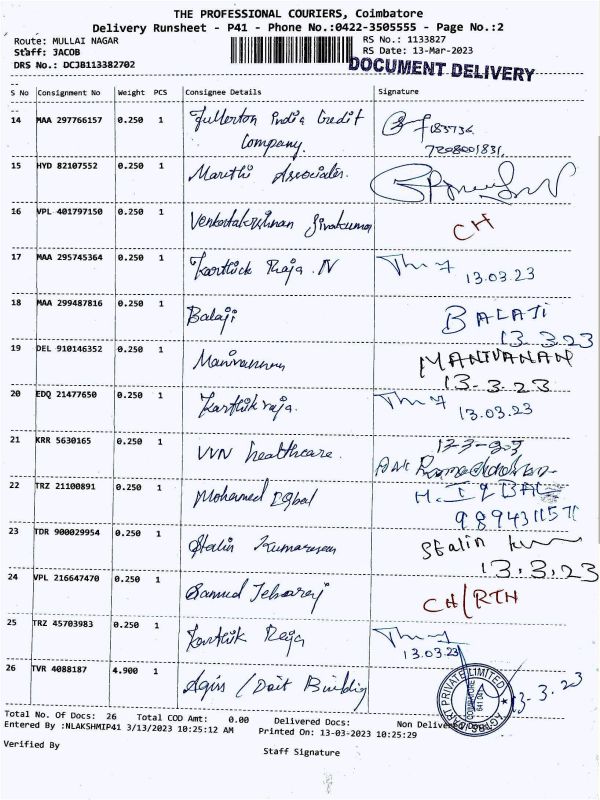 THE PROFESSIONAL COURIERS, Coimbatore
Delivery Runsheet - P41 - Phone No.:0422-3505555 - Page No.:2
Route: MULLAI NAGAR RS No.: 1133827
Staff: JACOB RS Date: 13-Mar-2023
DRS No.: DCJB113382702 DOCUMENT DELIVERY
S No Consignment No Weight PCS Consignee Details Signature
14 MAA 297766157 0.250 1 Fullerton India Credit 183736
Company. 7208001831,
15 HYD 82107552 0.250 1 Maruthi Associates.
16 VPL 401797150 0.250 1 Venkatakrishnan Sivakumar CH
17 MAA 295745364 0.250 1 Karthick Raja .N 13.03.23
18 MAA 299487816 0.250 1 Balaji BALAJI
13.3.23
19 DEL 910146352 0.250 1 Manivannan MANIVANAN
13.3.23
20 EDQ 21477650 0.250 1 Karthik raja. 13.03.23
21 KRR 5630165 0.250 1 VVN healthcare. 13-3-23
22 TRZ 21100891 0.250 1 Mohamed Iqbal M. IQBAL
9894311571
23 TDR 900029954 0.250 1 Stalin Kumaresan Stalin
13.3.23
24 VPL 216647470 0.250 1 Samuel Jebaraj CH/RTN
25 TRZ 45703983 0.250 1 Karthik Raja
13.03.23
26 TVR 4088187 4.900 1 Building 13.3.23
PRIVATE LIMITED
COIMBATORE
Total No. Of Docs: 26 Total COD Amt: 0.00 Delivered Docs: Non Delivered
Entered By :NLAKSHMIP41 3/13/2023 10:25:12 AM Printed On: 13-03-2023 10:25:29
Verified By Staff Signature